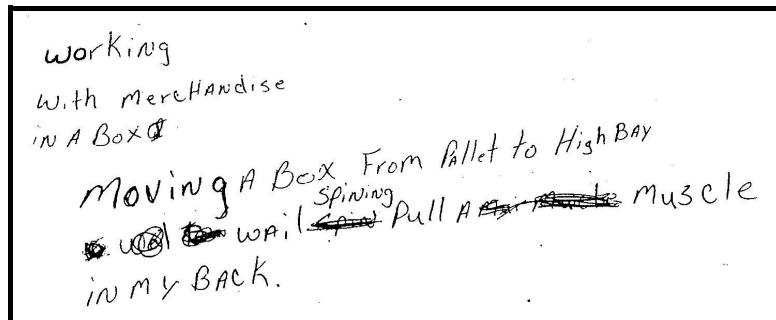 working
with mercHANdise
iN A Box
MoviNg A Box From PAllet to High BAY
wAil spiNiNg Pull A Muscle
iN MY BACK.